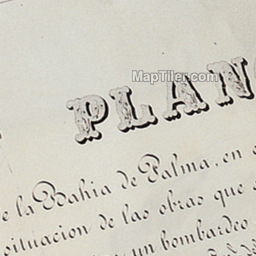 MapTiler.com
PLANO
de la Bahia de Palma, en
situacion de las obras que
un bombardeo